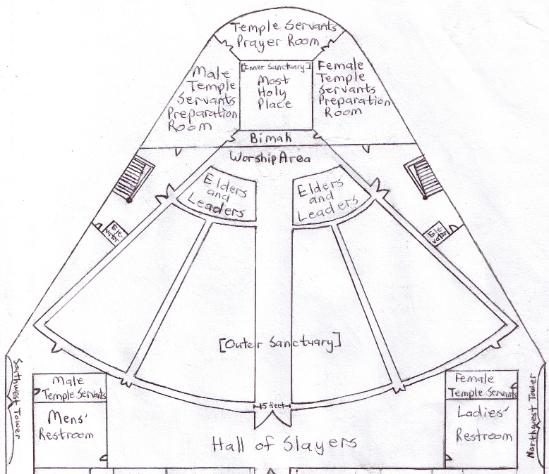 Temple Servants
Prayer Room
[Inner Sanctuary]
Most
Holy
Place
Male
Temple
Servants
Preparation
Room
Female
Temple
Servants
Preparation
Room
Bimah
Worship Area
Elders
and
Leaders
Elders
and
Leaders
Ele
vator
Ele
vator
[Outer Sanctuary]
Southwest Tower
Northwest Tower
Male
Temple Servants
Mens'
Restroom
Female
Temple Servants
Ladies'
Restroom
15 feet
Hall of Slayers